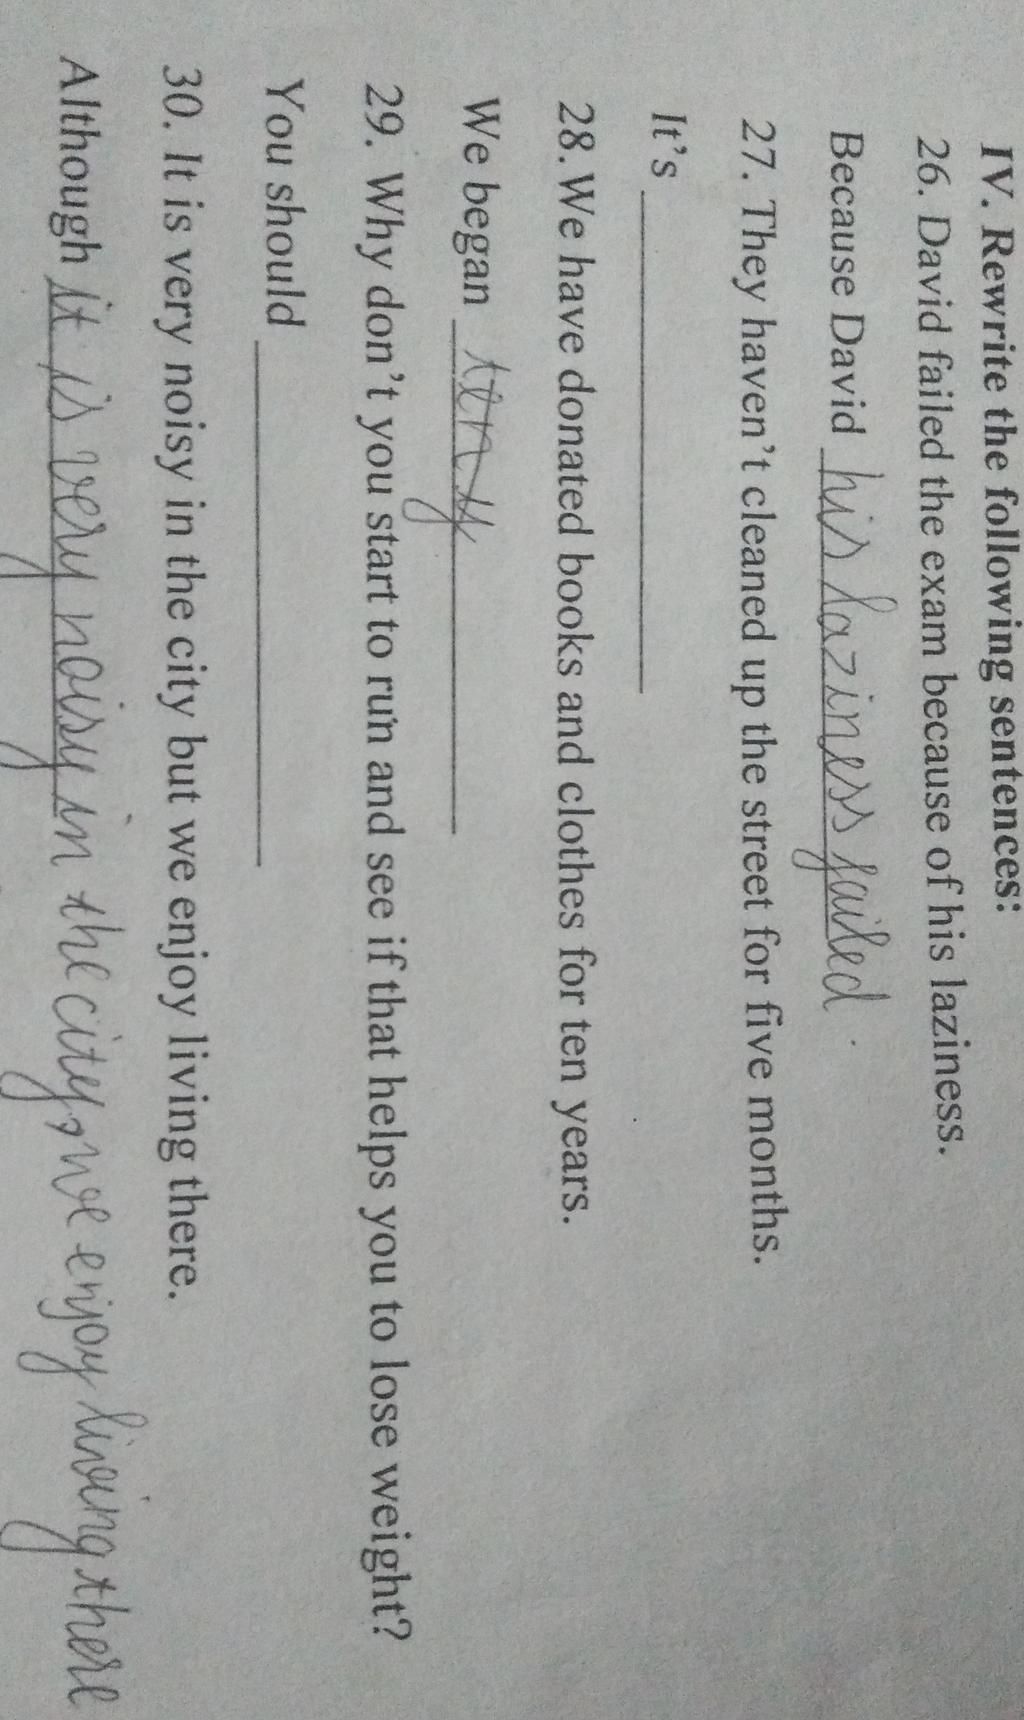 IV. Rewrite the following sentences:
26. David failed the exam because of his laziness.
Because David his laziness failed.
27. They haven't cleaned up the street for five months.
It's
28. We have donated books and clothes for ten years.
We began ten y
29. Why don't you start to run and see if that helps you to lose weight?
You should
30. It is very noisy in the city but we enjoy living there.
Although it is very noisy in the city, we enjoy living there